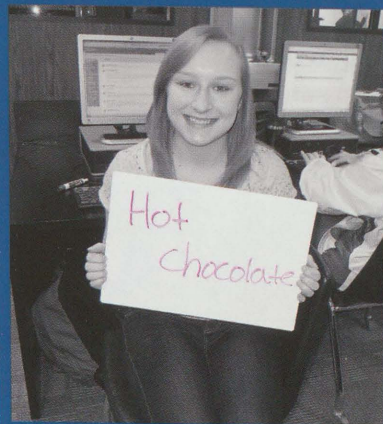 Hot
Chocolate